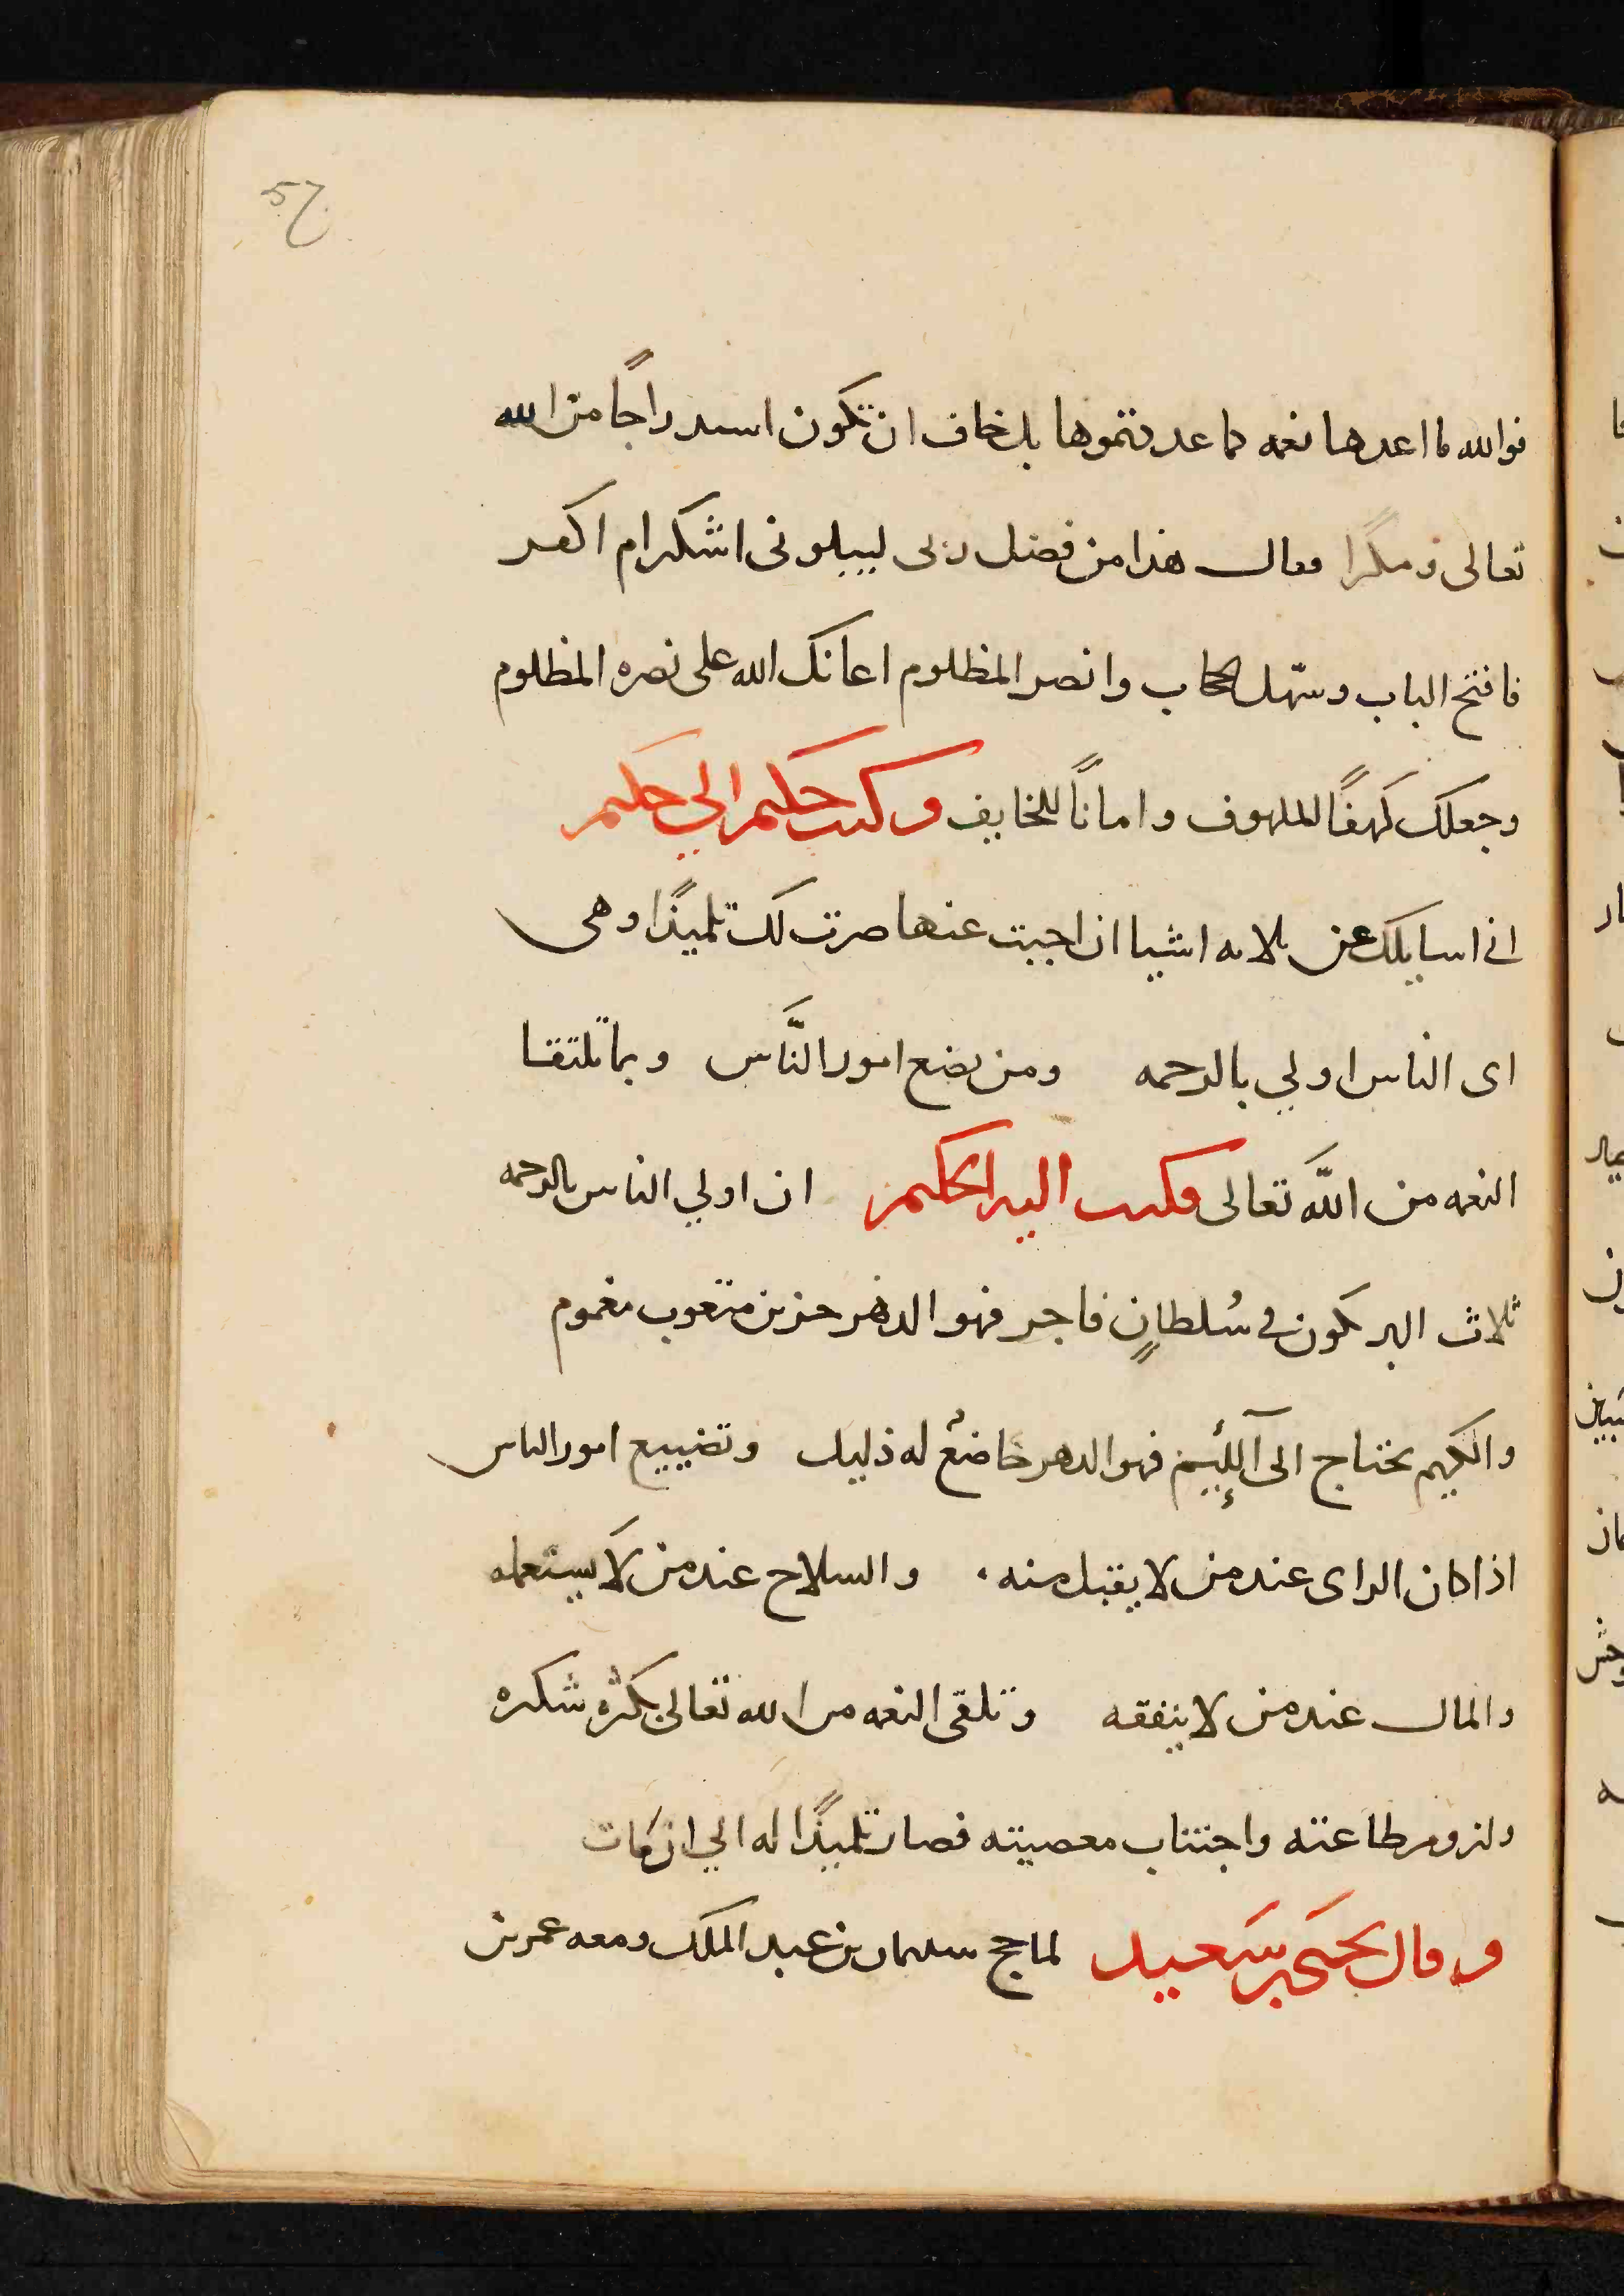 57
فوالله ما اعدها نعمه كما عددتموها بل نخاف ان تكون استدراجًا من الله
تعالى ومكرًا فقال هذا من فضل ربى ليبلونى ااشكر ام اكفر
فافتح الباب وسهّل الحجاب وانصر المظلوم اعانك الله على نصره المظلوم
وجعلك كهفًا للملهوف وامانًا للخايف وكتب حكيم الي حكيم
انى اسايلك عن ثلاثه اشيا ان اجبت عنها صرت لك تلميذًا وهى
اى الناس اولي بالرحمه ومن يضع امور النَّاس وبما تلتقا
النعمه من اللَّه تعالى فكتب اليه الحكيم ان اولي الناس بالرحمه
ثلاث البر يكون في سُلطانٍ فاجر فهو الدهر حزين متعوب مغموم
والكريم يحتاج الى اللئيم فهو الدهر خاضعٌ له ذليل وتضييع امور الناس
اذا كان الراى عند من لا يقبل منه والسلاح عند من لا يستعمله
والمال عند من لا ينفقه وتلقى النعمه من الله تعالى بكثره شكره
ولزوم طاعته واجتناب معصيته فصار تلميذًا له الي ان مات
وقال يحيى بن سَعيد لما حج سليمان بن عبد الملك ومعه عمر بن